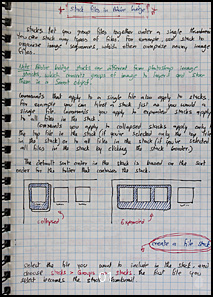 * Stack files in Adobe Bridge *
Stacks let you group files together under a single thumbnail
You can stack any types of files. For example, use stack to
organize image sequences, which often comprise many image
files
Note: Adobe Bridge stacks are different from photoshop image
stacks, which converts groups of image to layers and store
them in a smart object
Commands that apply to a single file also apply to stacks.
For example you can label a stack just as you would a
single file. Commands you apply to expanded stacks apply
to all files in the stack
Commands you apply to collapsed stacks apply only to
the top file in the stack (if you've selected only the top file
in the stack) or to all files in the stack (if you've selected
all files in the stack by clicking the stack border)
The default sort order in the stack is based on the sort
order for the folder that contains the stack.
collapsed
Expanded
Create a file stack
select the file you want to include in the stack, and
choose stacks > Group as stack. the first file you
select becomes the stack thumbnail.